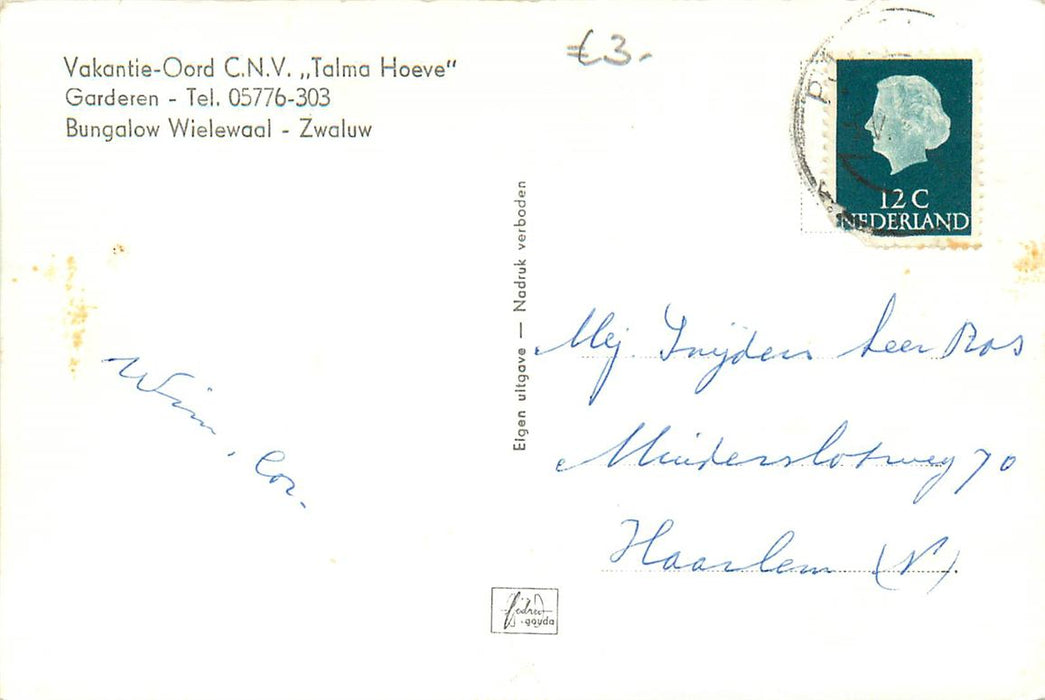 Vakantie-Oord C.N.V. „Talma Hoeve"
Garderen - Tel. 05776-303
Bungalow Wielewaal - Zwaluw
€3.-
12 C
NEDERLAND
Eigen uitgave — Nadruk verboden
Wim, Cor.
Mej. Snijders heer Ros
Minderslotweg 70
Haarlem (N).
gouda